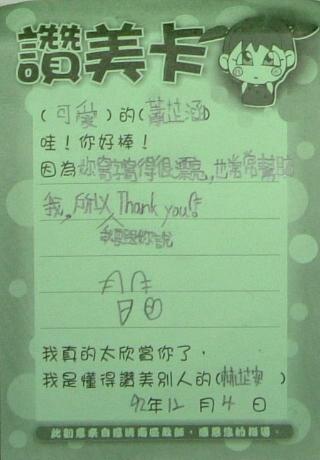 讚美卡
(可愛)的(黃芷涵)
哇！你好棒！
因為妳寫字寫得很漂亮,也常常幫助
我,所以 Thank you!
我要跟你說
我真的太欣賞你了，
我是懂得讚美別人的(林芷安)
92年12月4日